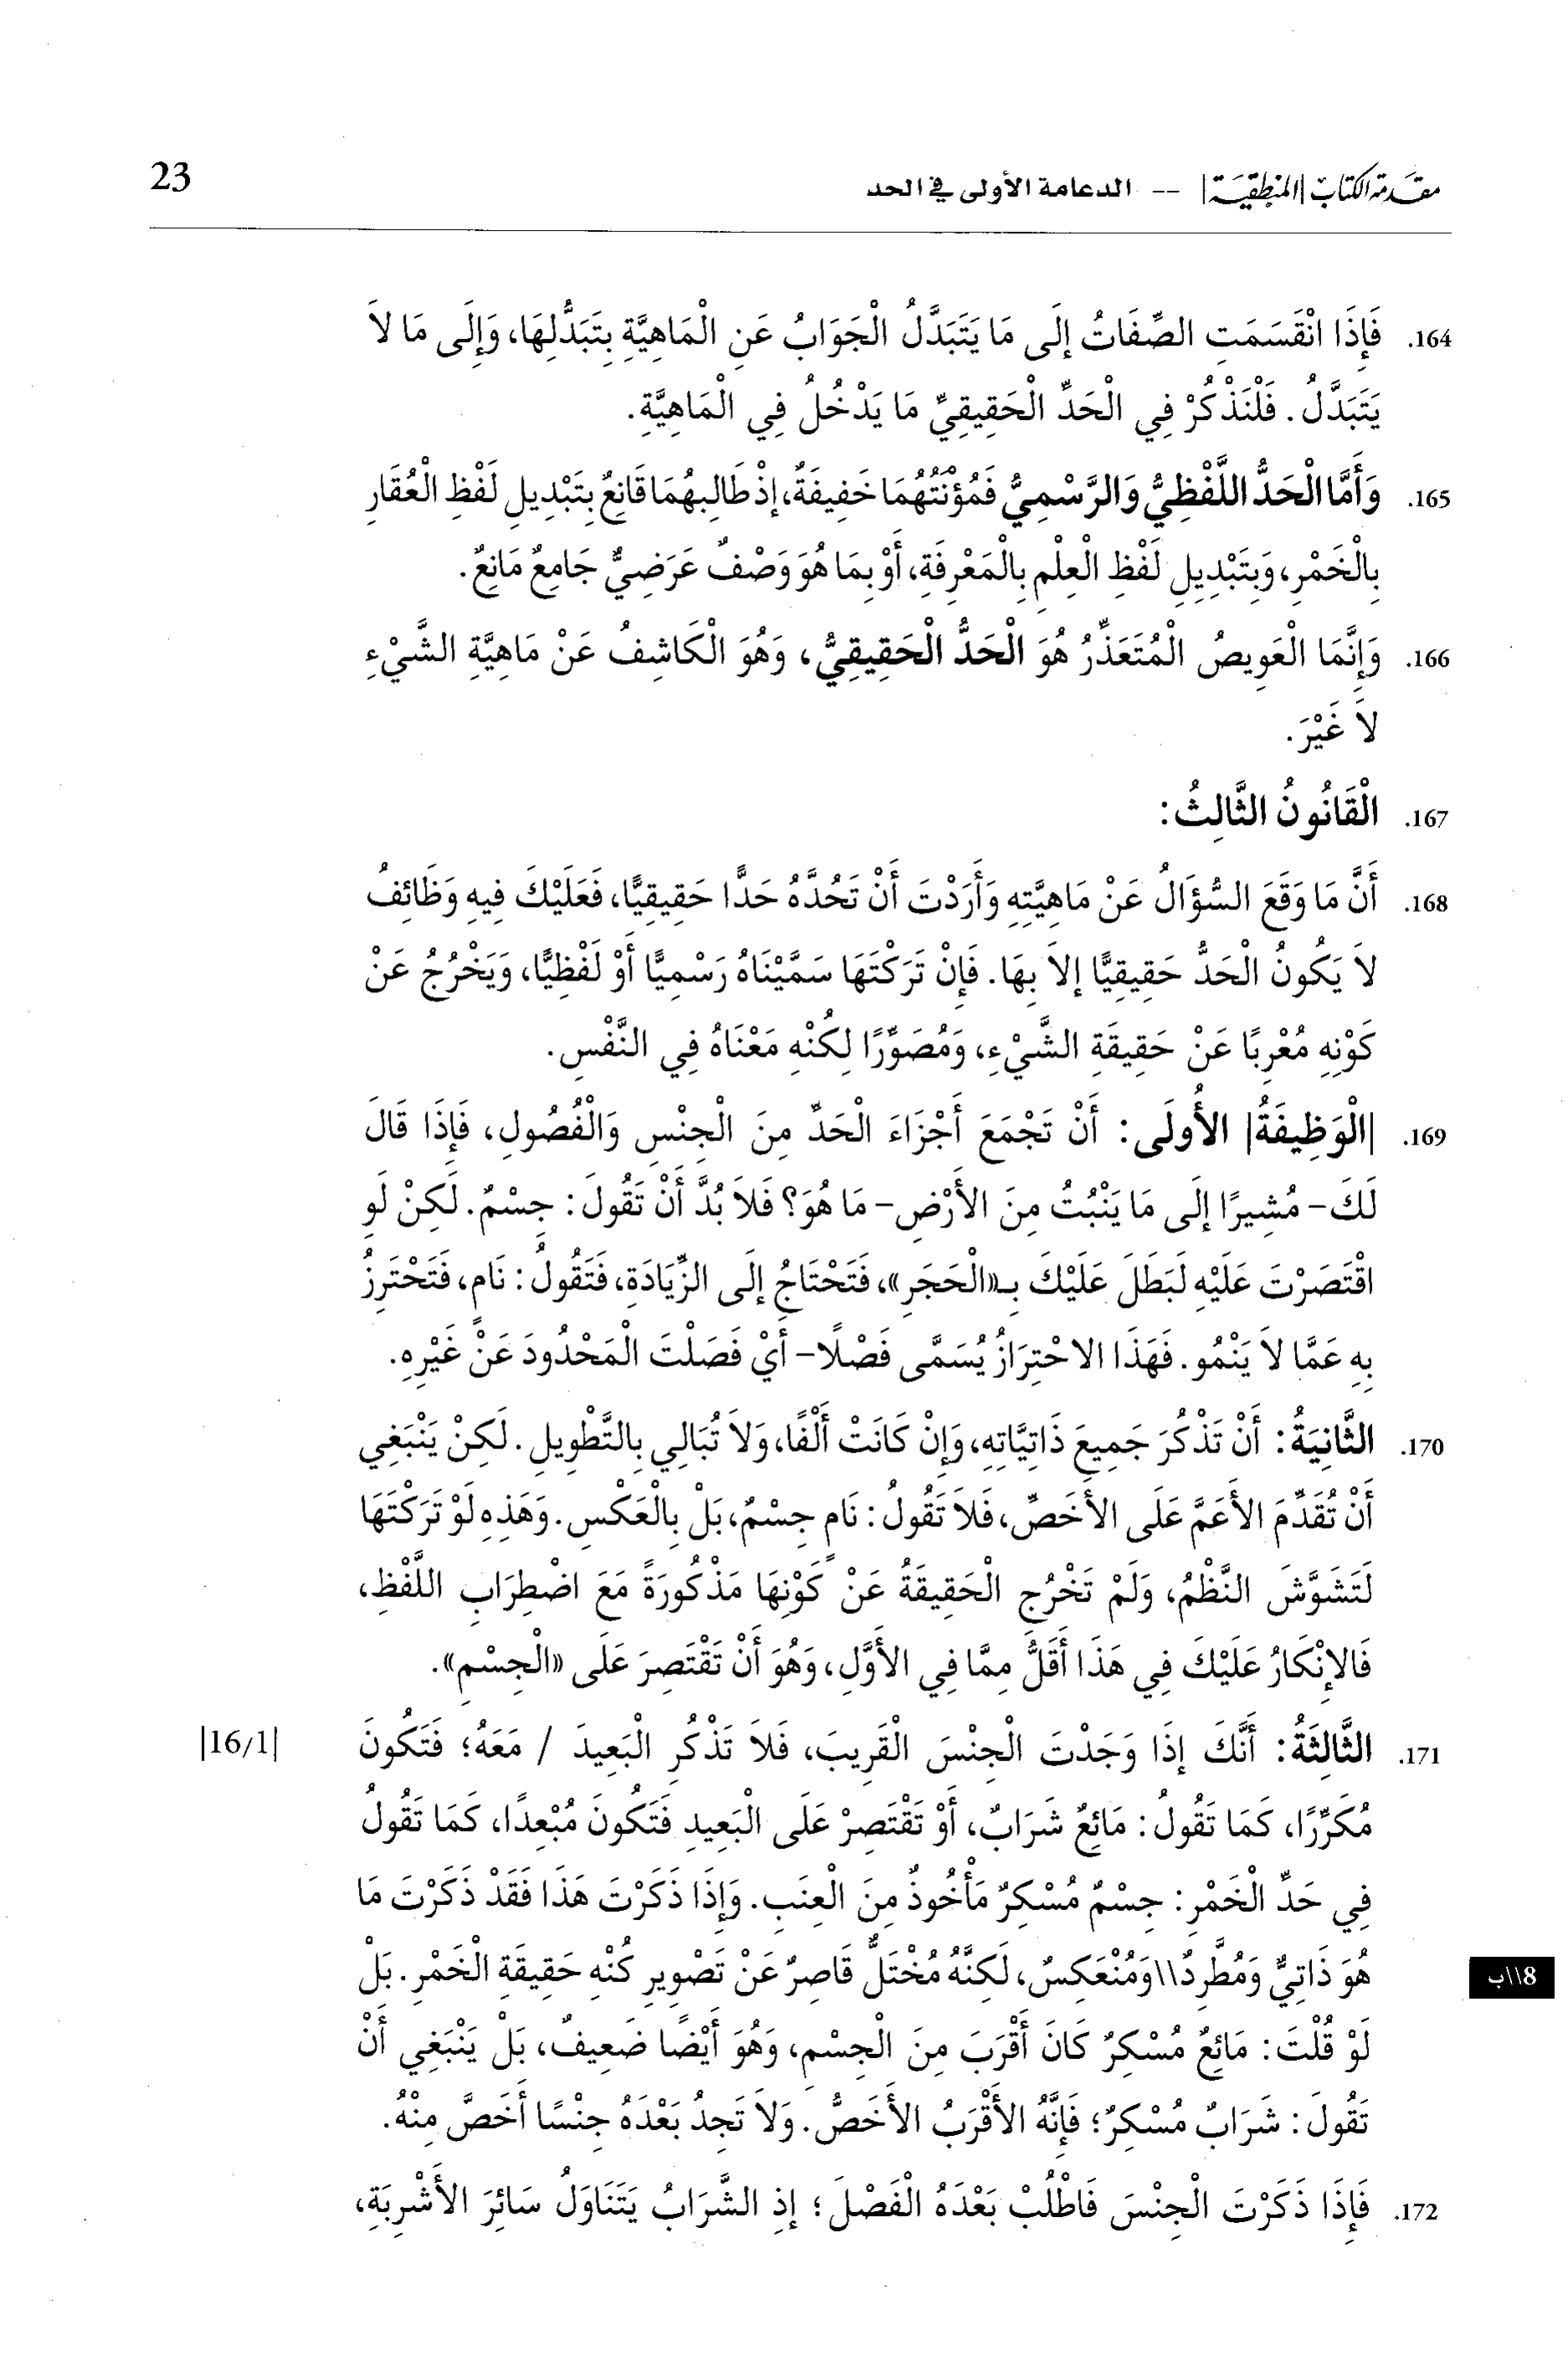 مقدمة الكتاب |المنطقية| -- الدعامة الأولى في الحد 23
164. فَإِذَا انْقَسَمَتِ الصِّفَاتُ إِلَى مَا يَتَبَدَّلُ الْجَوَابُ عَنِ الْمَاهِيَّةِ بِتَبَدُّلِهَا، وَإِلَى مَا لاَ
يَتَبَدَّلُ. فَلْنَذْكُرْ فِي الْحَدِّ الْحَقِيقِيِّ مَا يَدْخُلُ فِي الْمَاهِيَّةِ.
165. وَأَمَّا الْحَدُّ اللَّفْظِيُّ وَالرَّسْمِيُّ فَمُؤْنَتُهُمَا خَفِيفَةٌ، إِذْ طَالِبهُمَا قَانِعٌ بِتَبْدِيلِ لَفْظِ الْعُقَارِ
بِالْخَمْرِ، وَبِتَبْدِيلِ لَفْظِ الْعِلْمِ بِالْمَعْرِفَةِ، أَوْ بِمَا هُوَ وَصْفٌ عَرَضِيٌّ جَامِعٌ مَانِعٌ.
166. وَإِنَّمَا الْعَوِيصُ الْمُتَعَذِّرُ هُوَ الْحَدُّ الْحَقِيقِيُّ، وَهُوَ الْكَاشِفُ عَنْ مَاهِيَّةِ الشَّيْءِ
لاَ غَيْرَ.
167. الْقَانُونُ الثَّالِثُ:
168. أَنَّ مَا وَقَعَ السُّؤَالُ عَنْ مَاهِيَّتِهِ وَأَرَدْتَ أَنْ تَحُدَّهُ حَدًّا حَقِيقِيًّا، فَعَلَيْكَ فِيهِ وَظَائِفُ
لاَ يَكُونُ الْحَدُّ حَقِيقِيًّا إِلاَّ بِهَا. فَإِنْ تَرَكْتَهَا سَمَّيْنَاهُ رَسْمِيًّا أَوْ لَفْظِيًّا، وَيَخْرُجُ عَنْ
كَوْنِهِ مُعْرِبًا عَنْ حَقِيقَةِ الشَّيْءِ، وَمُصَوِّرًا لِكُنْهِ مَعْنَاهُ فِي النَّفْسِ.
169. |الْوَظِيفَةُ| الأُولَى: أَنْ تَجْمَعَ أَجْزَاءَ الْحَدِّ مِنَ الْجِنْسِ وَالْفُصُولِ، فَإِذَا قَالَ
لَكَ- مُشِيرًا إِلَى مَا يَنْبُتُ مِنَ الأَرْضِ- مَا هُوَ؟ فَلاَ بُدَّ أَنْ تَقُولَ: جِسْمٌ. لَكِنْ لَوِ
اقْتَصَرْتَ عَلَيْهِ لَبَطَلَ عَلَيْكَ بِـ«الْحَجَرِ»، فَتَحْتَاجُ إِلَى الزِّيَادَةِ، فَتَقُولُ: نَامٍ، فَتَحْتَرِزُ
بِهِ عَمَّا لاَ يَنْمُو. فَهَذَا الاحْتِرَازُ يُسَمَّى فَصْلًا- أَيْ فَصَلْتَ الْمَحْدُودَ عَنْ غَيْرِهِ.
170. الثَّانِيَةُ: أَنْ تَذْكُرَ جَمِيعَ ذَاتِيَّاتِهِ، وَإِنْ كَانَتْ أَلْفًا، وَلاَ تُبَالِي بِالتَّطْوِيلِ. لَكِنْ يَنْبَغِي
أَنْ تُقَدِّمَ الأَعَمَّ عَلَى الأَخَصِّ، فَلاَ تَقُولُ: نَامٍ جِسْمٌ، بَلْ بِالْعَكْسِ. وَهَذِهِ لَوْ تَرَكْتَهَا
لَتَشَوَّشَ النَّظْمُ، وَلَمْ تَخْرُجِ الْحَقِيقَةُ عَنْ كَوْنِهَا مَذْكُورَةً مَعَ اضْطِرَابِ اللَّفْظِ،
فَالإِنْكَارُ عَلَيْكَ فِي هَذَا أَقَلُّ مِمَّا فِي الأَوَّلِ، وَهُوَ أَنْ تَقْتَصِرَ عَلَى «الْجِسْمِ».
171. الثَّالِثَةُ: أَنَّكَ إِذَا وَجَدْتَ الْجِنْسَ الْقَرِيبَ، فَلاَ تَذْكُرِ الْبَعِيدَ / مَعَهُ؛ فَتَكُونَ |16/1|
مُكَرِّرًا، كَمَا تَقُولُ: مَائِعٌ شَرَابٌ، أَوْ تَقْتَصِرْ عَلَى الْبَعِيدِ فَتَكُونَ مُبْعِدًا، كَمَا تَقُولُ
فِي حَدِّ الْخَمْرِ: جِسْمٌ مُسْكِرٌ مَأْخُوذٌ مِنَ الْعِنَبِ. وَإِذَا ذَكَرْتَ هَذَا فَقَدْ ذَكَرْتَ مَا
هُوَ ذَاتِيٌّ وَمُطَّرِدٌ\\وَمُنْعَكِسٌ، لَكِنَّهُ مُخْتَلٌّ قَاصِرٌ عَنْ تَصْوِيرِ كُنْهِ حَقِيقَةِ الْخَمْرِ. بَلْ 8\\ب
لَوْ قُلْتَ: مَائِعٌ مُسْكِرٌ كَانَ أَقْرَبَ مِنَ الْجِسْمِ، وَهُوَ أَيْضًا ضَعِيفٌ، بَلْ يَنْبَغِي أَنْ
تَقُولَ: شَرَابٌ مُسْكِرٌ؛ فَإِنَّهُ الأَقْرَبُ الأَخَصُّ. وَلاَ تَجِدُ بَعْدَهُ جِنْسًا أَخَصَّ مِنْهُ.
172. فَإِذَا ذَكَرْتَ الْجِنْسَ فَاطْلُبْ بَعْدَهُ الْفَصْلَ؛ إِذِ الشَّرَابُ يَتَنَاوَلُ سَائِرَ الأَشْرِبَةِ،